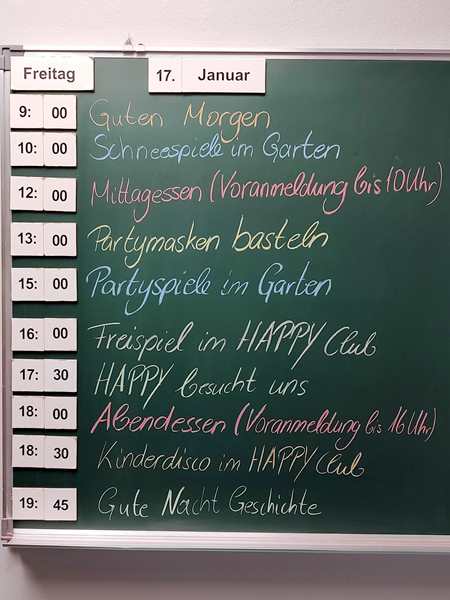 Freitag 17. Januar
9: 00 Guten Morgen
10: 00 Schneespiele im Garten
12: 00 Mittagessen (Voranmeldung bis 10 Uhr)
13: 00 Partymasken basteln
15: 00 Partyspiele im Garten
16: 00 Freispiel im HAPPY Club
17: 30 HAPPY besucht uns
18: 00 Abendessen (Voranmeldung bis 16 Uhr)
18: 30 Kinderdisco im HAPPY Club
19: 45 Gute Nacht Geschichte